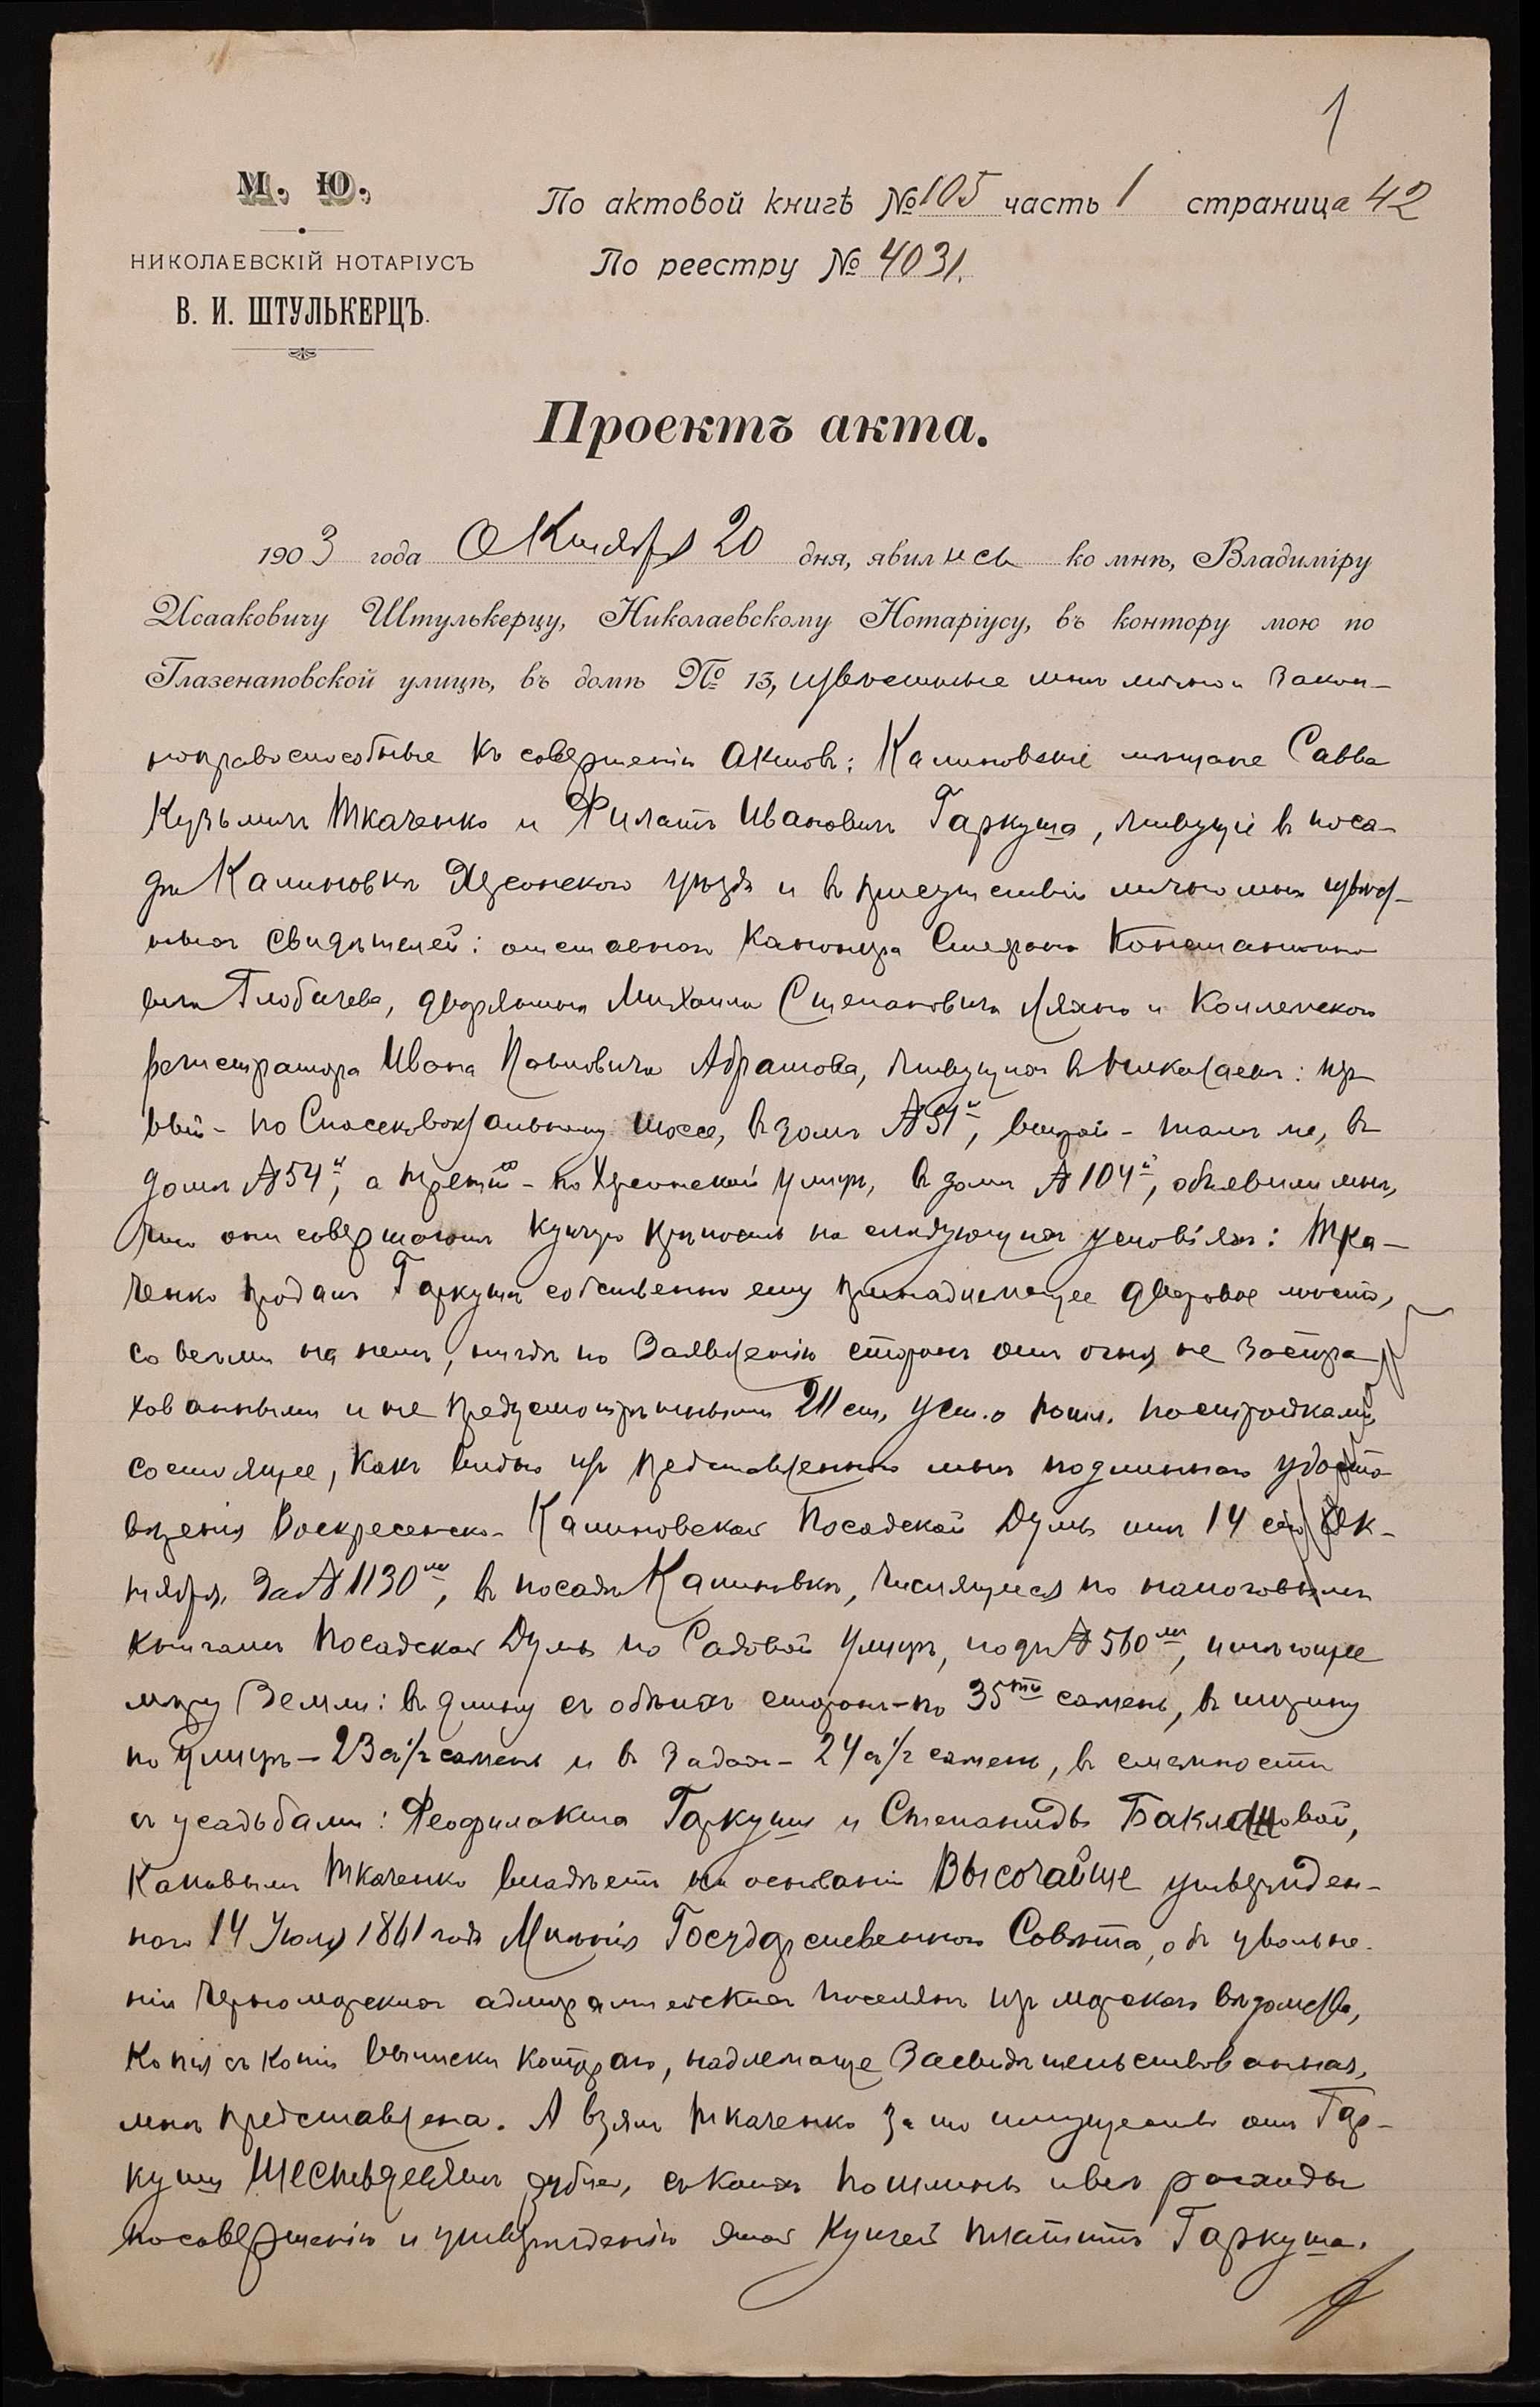 1
М. Ю.
По актовой книгѣ № 105 часть 1 страница 42
НИКОЛАЕВСКІЙ НОТАРІУСЪ
По реестру № 4031.
В. И. ШТУЛЬКЕРЦЪ.
Проектъ акта.
1903 года Октября 20 дня, явились ко мнѣ, Владиміру
Исааковичу Штулькерцу, Николаевскому Нотаріусу, въ контору мою по
Глазенаповской улицѣ, въ домѣ № 13, извѣстные мнѣ лично и закон-
ноправоспособные къ совершенію актовъ: Калиновскіе мѣщане Савва
Кузьмичъ Ткаченко и Филатъ Ивановичъ Гаркуша, живущіе въ поса-
дѣ Калиновкѣ Херсонскаго уѣзда и въ присутствіи лично мнѣ извѣст-
ныхъ свидѣтелей: отставнаго канонира Стефана Константино-
вича Глобачева, дворянина Михаила Степановича Ляхно и Коллежскаго
регистратора Ивана Павловича Абрамова, живущихъ въ Николаевѣ: пер-
вый - по Спасскому шоссе, въ домѣ № 51й, второй - тамъ же, въ
домѣ № 54й, а третій - по Херсонской улицѣ, въ домѣ № 104й, объявили мнѣ,
что они совершаютъ купчую крѣпость на слѣдующихъ условіяхъ: Тка-
ченко продалъ Гаркушѣ собственно ему принадлежащее дворовое мѣсто,
со всѣми на немъ, нигдѣ по заявленію сторонъ отъ огня не застра-
хованными и не предусмотрѣнными 211 ст. уст. о пошл. постройками,
состоящее, какъ видно изъ представленнаго мнѣ подлиннаго удосто-
вѣренія Воскресенско-Калиновской Посадской Думы отъ 14 сего Ок-
тября, за № 1130мъ, въ посадѣ Калиновкѣ, числящееся по налоговымъ
книгамъ Посадской Думы по Садовой улицѣ, подъ № 560мъ, имѣющее
мѣру земли: въ длину съ обѣихъ сторонъ - по 35ти сажень, въ ширину
по улицѣ - 23 съ 1/2 сажень и въ задахъ - 24 съ 1/2 сажень, въ смежности
съ усадьбами: Феофилакта Гаркуши и Степаниды Баклановой,
каковымъ Ткаченко владѣетъ на основаніи Высочайше утвержден-
наго 14 Іюля 1861 года Мнѣнія Государственнаго Совѣта, объ увольне-
ніи черноморскихъ адмиралтейскихъ поселянъ изъ морскаго вѣдомства,
копія съ копіи выписки котораго, надлежаще засвидѣтельствованная,
мнѣ представлена. А взялъ Ткаченко за то имущество отъ Гар-
куши шестьдесятъ рублей, съ коихъ пошлины и всѣ расходы
по совершенію и утвержденію этой купчей платитъ Гаркуша.